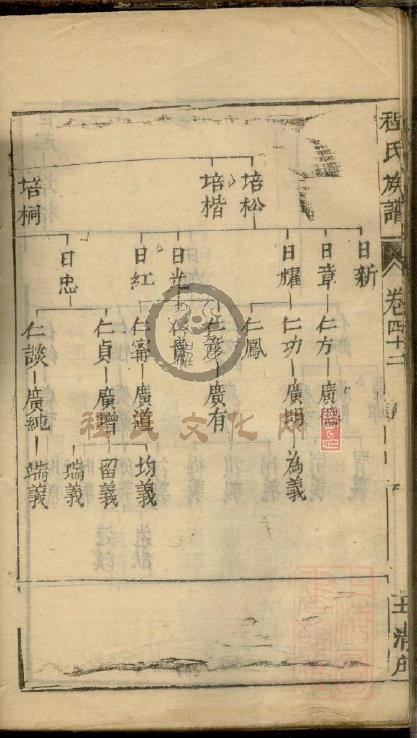 程氏族譜
卷四十二
培松
培楷
培桐
日新
日章
日耀
日光
日紅
日忠
仁方
仁功
仁鳳
仁彥
仁寗
仁貞
仁談
廣明
廣有
廣道
廣增
廣純
為義
均義
留義
瑞義
端義
程氏文化